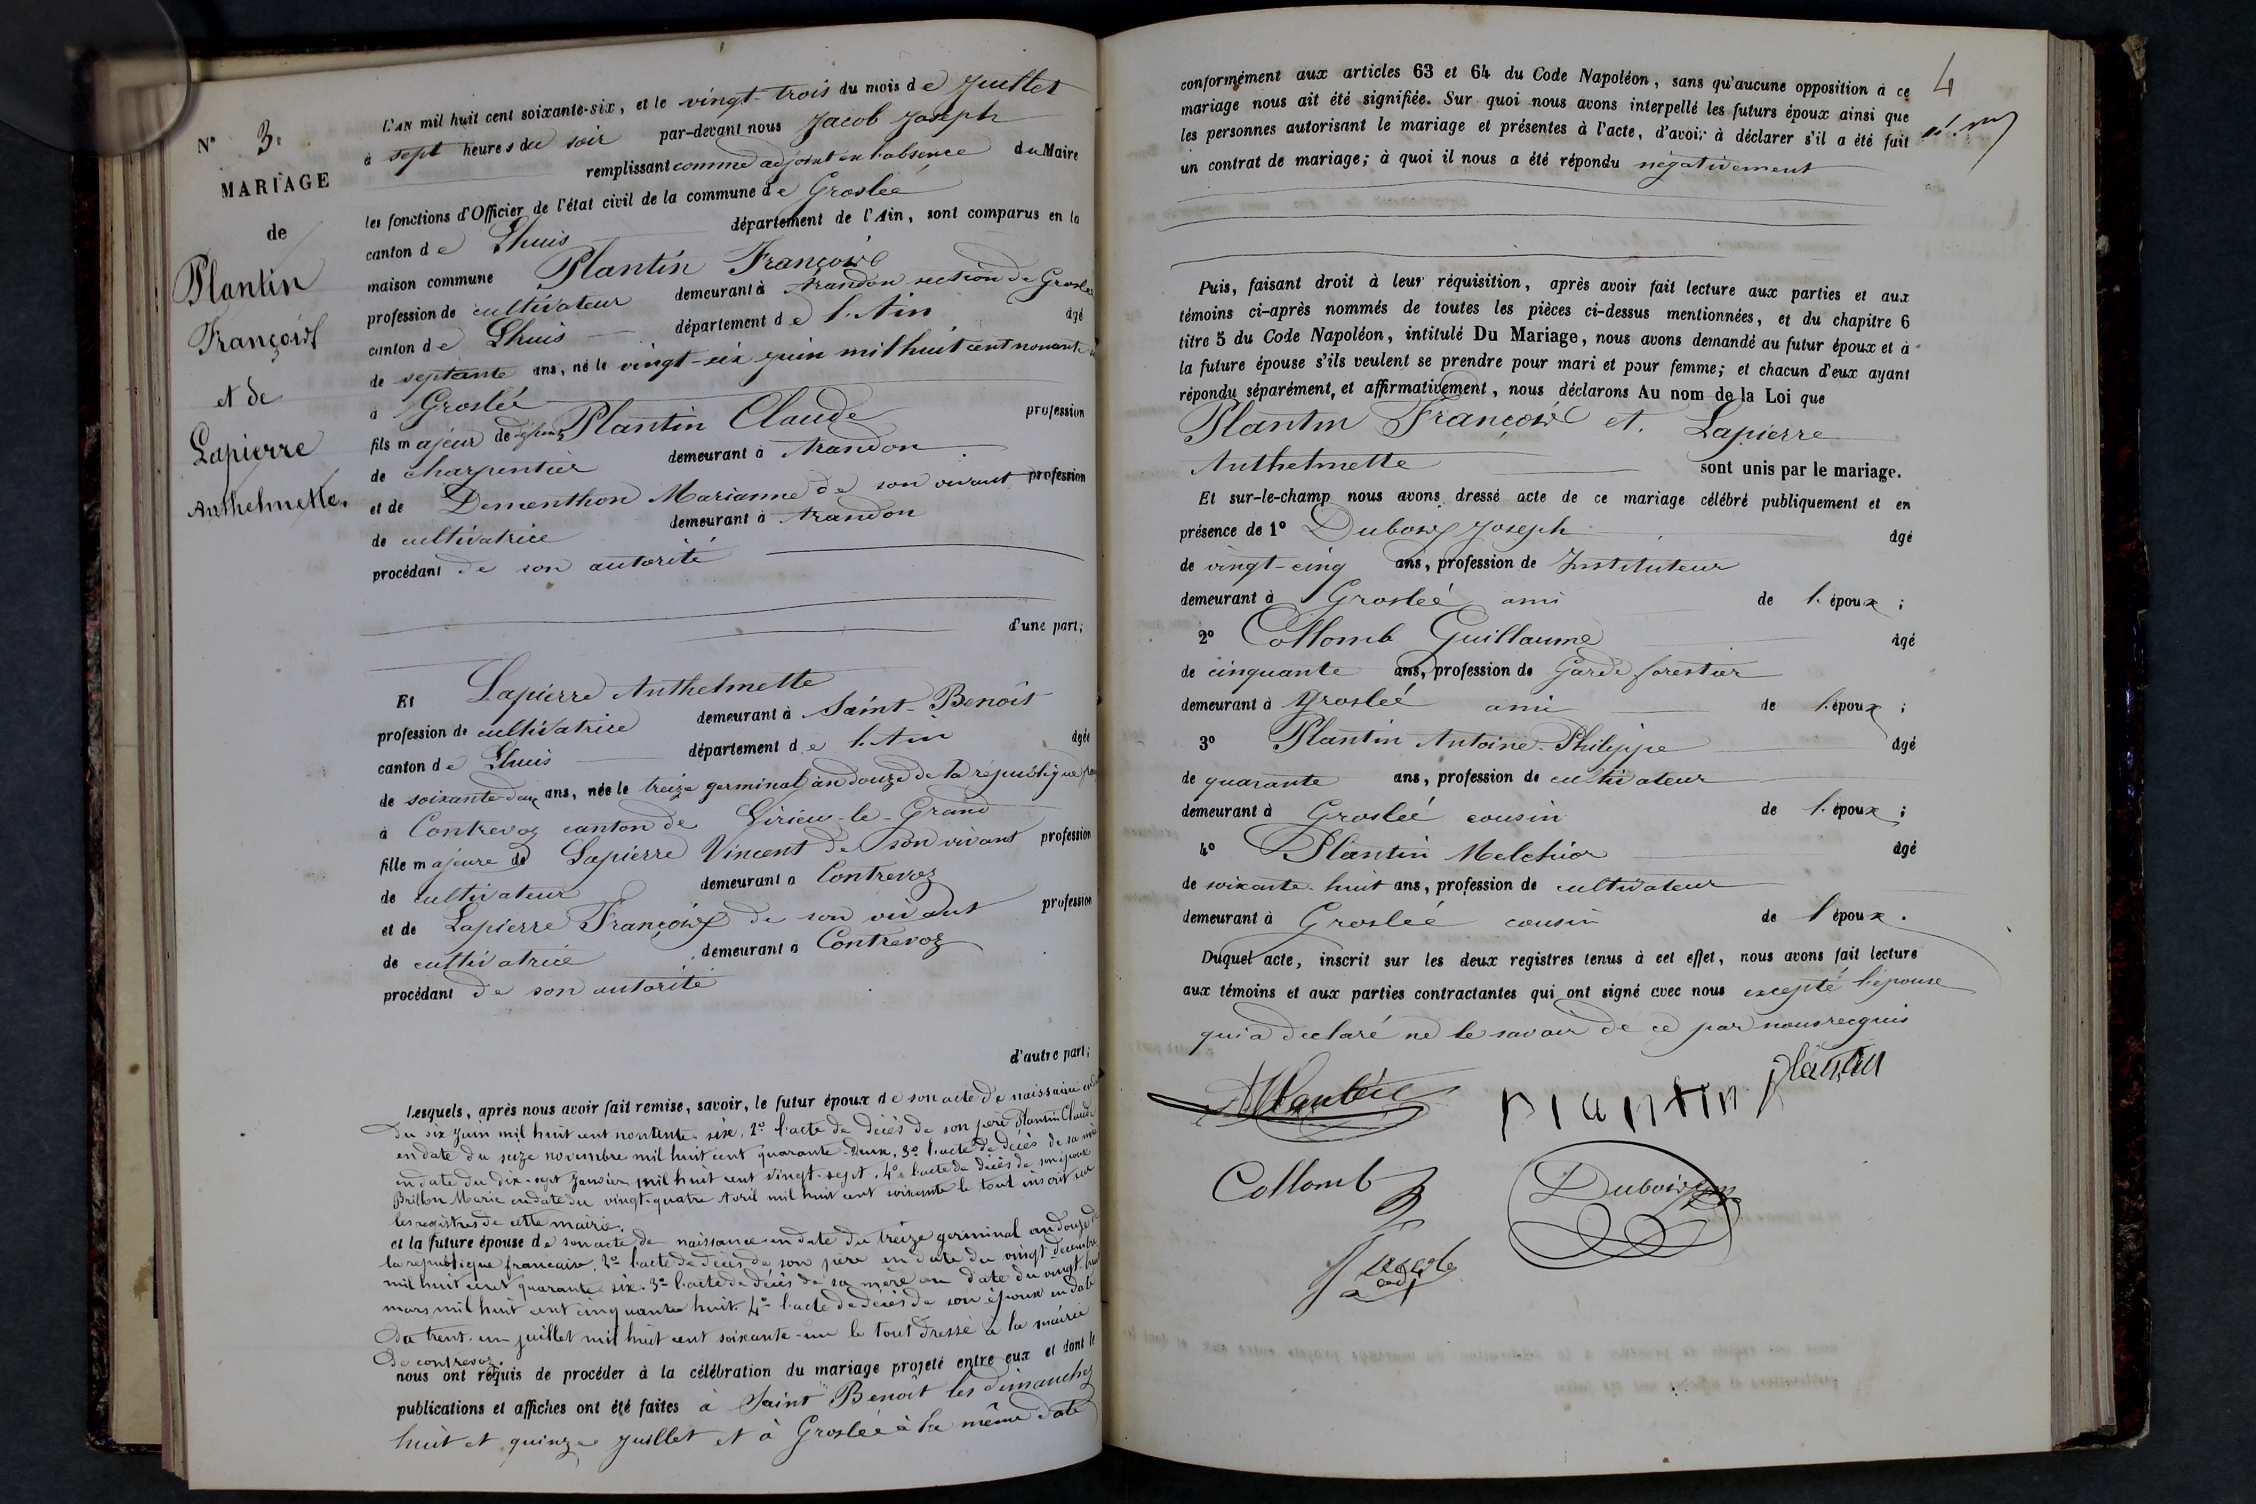 N° 3.
MARIAGE
de
Plantin
François
et de
Lapierre
Anthelmette.
L'AN mil huit cent soixante-six, et le vingt-trois du mois de Juillet
à sept heures du soir par-devant nous Jacob Joseph
remplissant comme adjoint en l'absence du Maire
les fonctions d'Officier de l'état civil de la commune de Groslée
canton de Lhuis département de l'Ain, sont comparus en la
maison commune Plantin François
profession de cultivateur demeurant à Arandon section de Groslée
canton de Lhuis département de l'Ain âgé
de septante ans, né le vingt-six juin mil huit cent nonante
à Groslée
fils majeur de défunt Plantin Claude profession
de charpentier demeurant à Arandon
et de Dementhon Marianne de son vivant profession
de cultivatrice demeurant à Arandon
procédant de son autorité
d'une part;
Et Lapierre Anthelmette
profession de cultivatrice demeurant à Saint-Benoît
canton de Lhuis département de l'Ain âgée
de soixante-deux ans, née le treize germinal an douze de la république
à Contrevoz canton de Virieu-le-Grand
fille majeure de Lapierre Vincent de son vivant profession
de cultivateur demeurant à Contrevoz
et de Lapierre Françoise de son vivant profession
de cultivatrice demeurant à Contrevoz
procédant de son autorité
d'autre part;
Lesquels, après nous avoir fait remise, savoir, le futur époux de son acte de naissance en
du six Juin mil huit cent nontente six, 2° l'acte de décès de son père Plantin Claude
en date du seize novembre mil huit cent quarante-deux, 3° l'acte de décès de sa mère
en date du dix-sept Janvier mil huit cent vingt-sept, 4° l'acte de décès de son épouse
Brillon Marie en date du vingt-quatre Avril mil huit cent soixante le tout inscrit sur
les registres de cette mairie.
et la future épouse de son acte de naissance en date du treize germinal an douze de
la république francaise, 2° l'acte de décès de son père en date du vingt décembre
mil huit cent quarante-six. 3° l'acte de décès de sa mère en date du vingt-huit
mars mil huit cent cinquante huit. 4° l'acte de décès de son époux en date
du trent-un juillet mil huit cent soixante-un le tout dressé à la mairie
de contrevoz.
nous ont requis de procéder à la célébration du mariage projeté entre eux et dont le
publications et affiches ont été faites à Saint Benoît les dimanches
huit et quinze Juillet et à Groslée à la même date
4
conformément aux articles 63 et 64 du Code Napoléon, sans qu'aucune opposition à ce
mariage nous ait été signifiée. Sur quoi nous avons interpellé les futurs époux ainsi que
les personnes autorisant le mariage et présentes à l'acte, d'avoir à déclarer s'il a été fait
un contrat de mariage; à quoi il nous a été répondu négativement
Puis, faisant droit à leur réquisition, après avoir fait lecture aux parties et aux
témoins ci-après nommés de toutes les pièces ci-dessus mentionnées, et du chapitre 6
titre 5 du Code Napoléon, intitulé Du Mariage, nous avons demandé au futur époux et à
la future épouse s'ils veulent se prendre pour mari et pour femme; et chacun d'eux ayant
répondu séparément, et affirmativement, nous déclarons Au nom de la Loi que
Plantin François et Lapierre
Anthelmette sont unis par le mariage.
Et sur-le-champ nous avons dressé acte de ce mariage célébré publiquement et en
présence de 1° Dubois Joseph âgé
de vingt-cinq ans, profession de Instituteur
demeurant à Groslée ami de l'époux;
2° Collomb Guillaume âgé
de cinquante ans, profession de Garde forestier
demeurant à Groslée ami de l'époux;
3° Plantin Antoine-Philippe âgé
de quarante ans, profession de cultivateur
demeurant à Groslée cousin de l'époux;
4° Plantin Melchior âgé
de soixante-huit ans, profession de cultivateur
demeurant à Groslée cousin de l'époux.
Duquel acte, inscrit sur les deux registres tenus à cet effet, nous avons fait lecture
aux témoins et aux parties contractantes qui ont signé avec nous excepté l'épouse
qui a déclaré ne le savoir de ce par nous recquis
Plantin
Plantin
Plantin
Collomb
Dubois
Jacob
adj